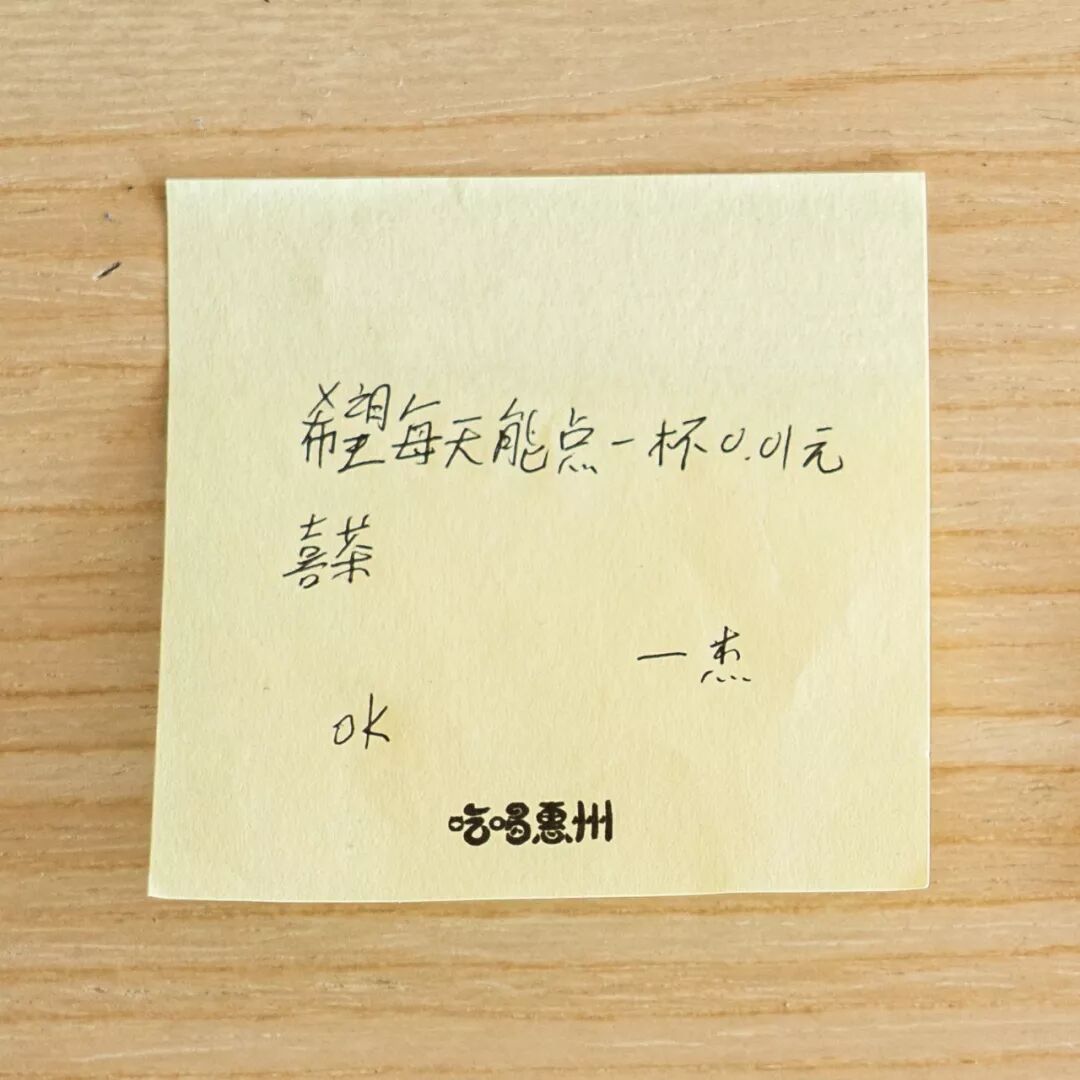 希望每天能点一杯0.01元
喜茶
一杰
OK
吃喝惠州